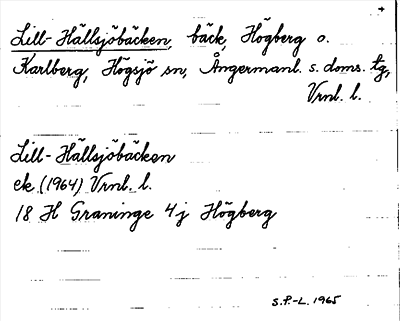 Lill-Hällsjöbäcken, bäck, Högberg o.
Karlberg, Högsjö sn, Ångermanl. s. doms. tg,
Vrnl. l.
Lill-Hällsjöbäcken
ek (1964) Vrnl. l.
18 H Graninge 4j Högberg
S.P.-L. 1965